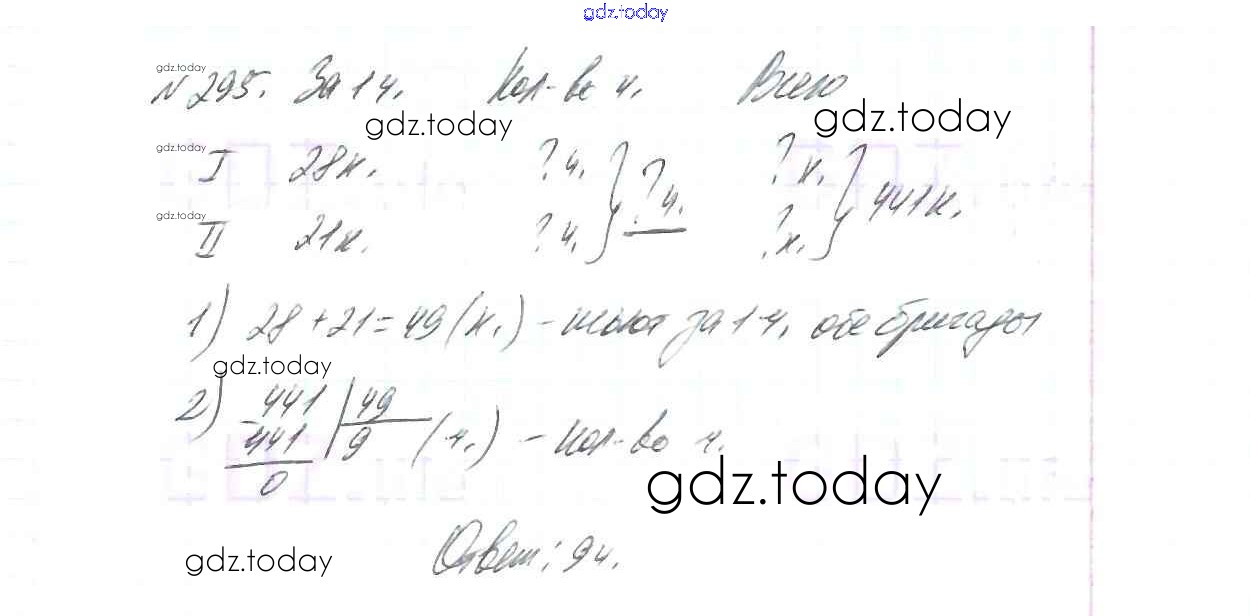 gdz.today
gdz.today
№295. За 1 ч. Кол-во ч. Всего
gdz.today gdz.today
gdz.today
I 28к. ? ч. } ? ч. ? к. } 441к.
gdz.today
II 21к. ? ч. ? к.
1) 28 + 21 = 49 (к.) - шьют за 1 ч. обе бригады
gdz.today
2) 441 | 49
- 441 | 9 (ч.) - кол-во ч.
0
gdz.today
Ответ: 9 ч.
gdz.today